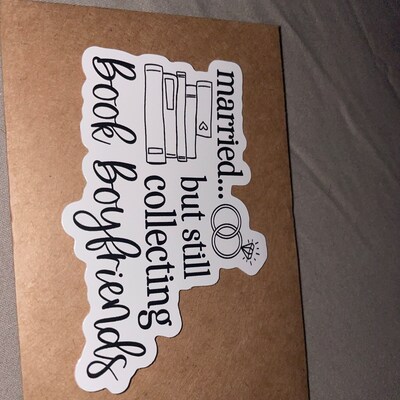 married...
but still
collecting
Book Boyfriends